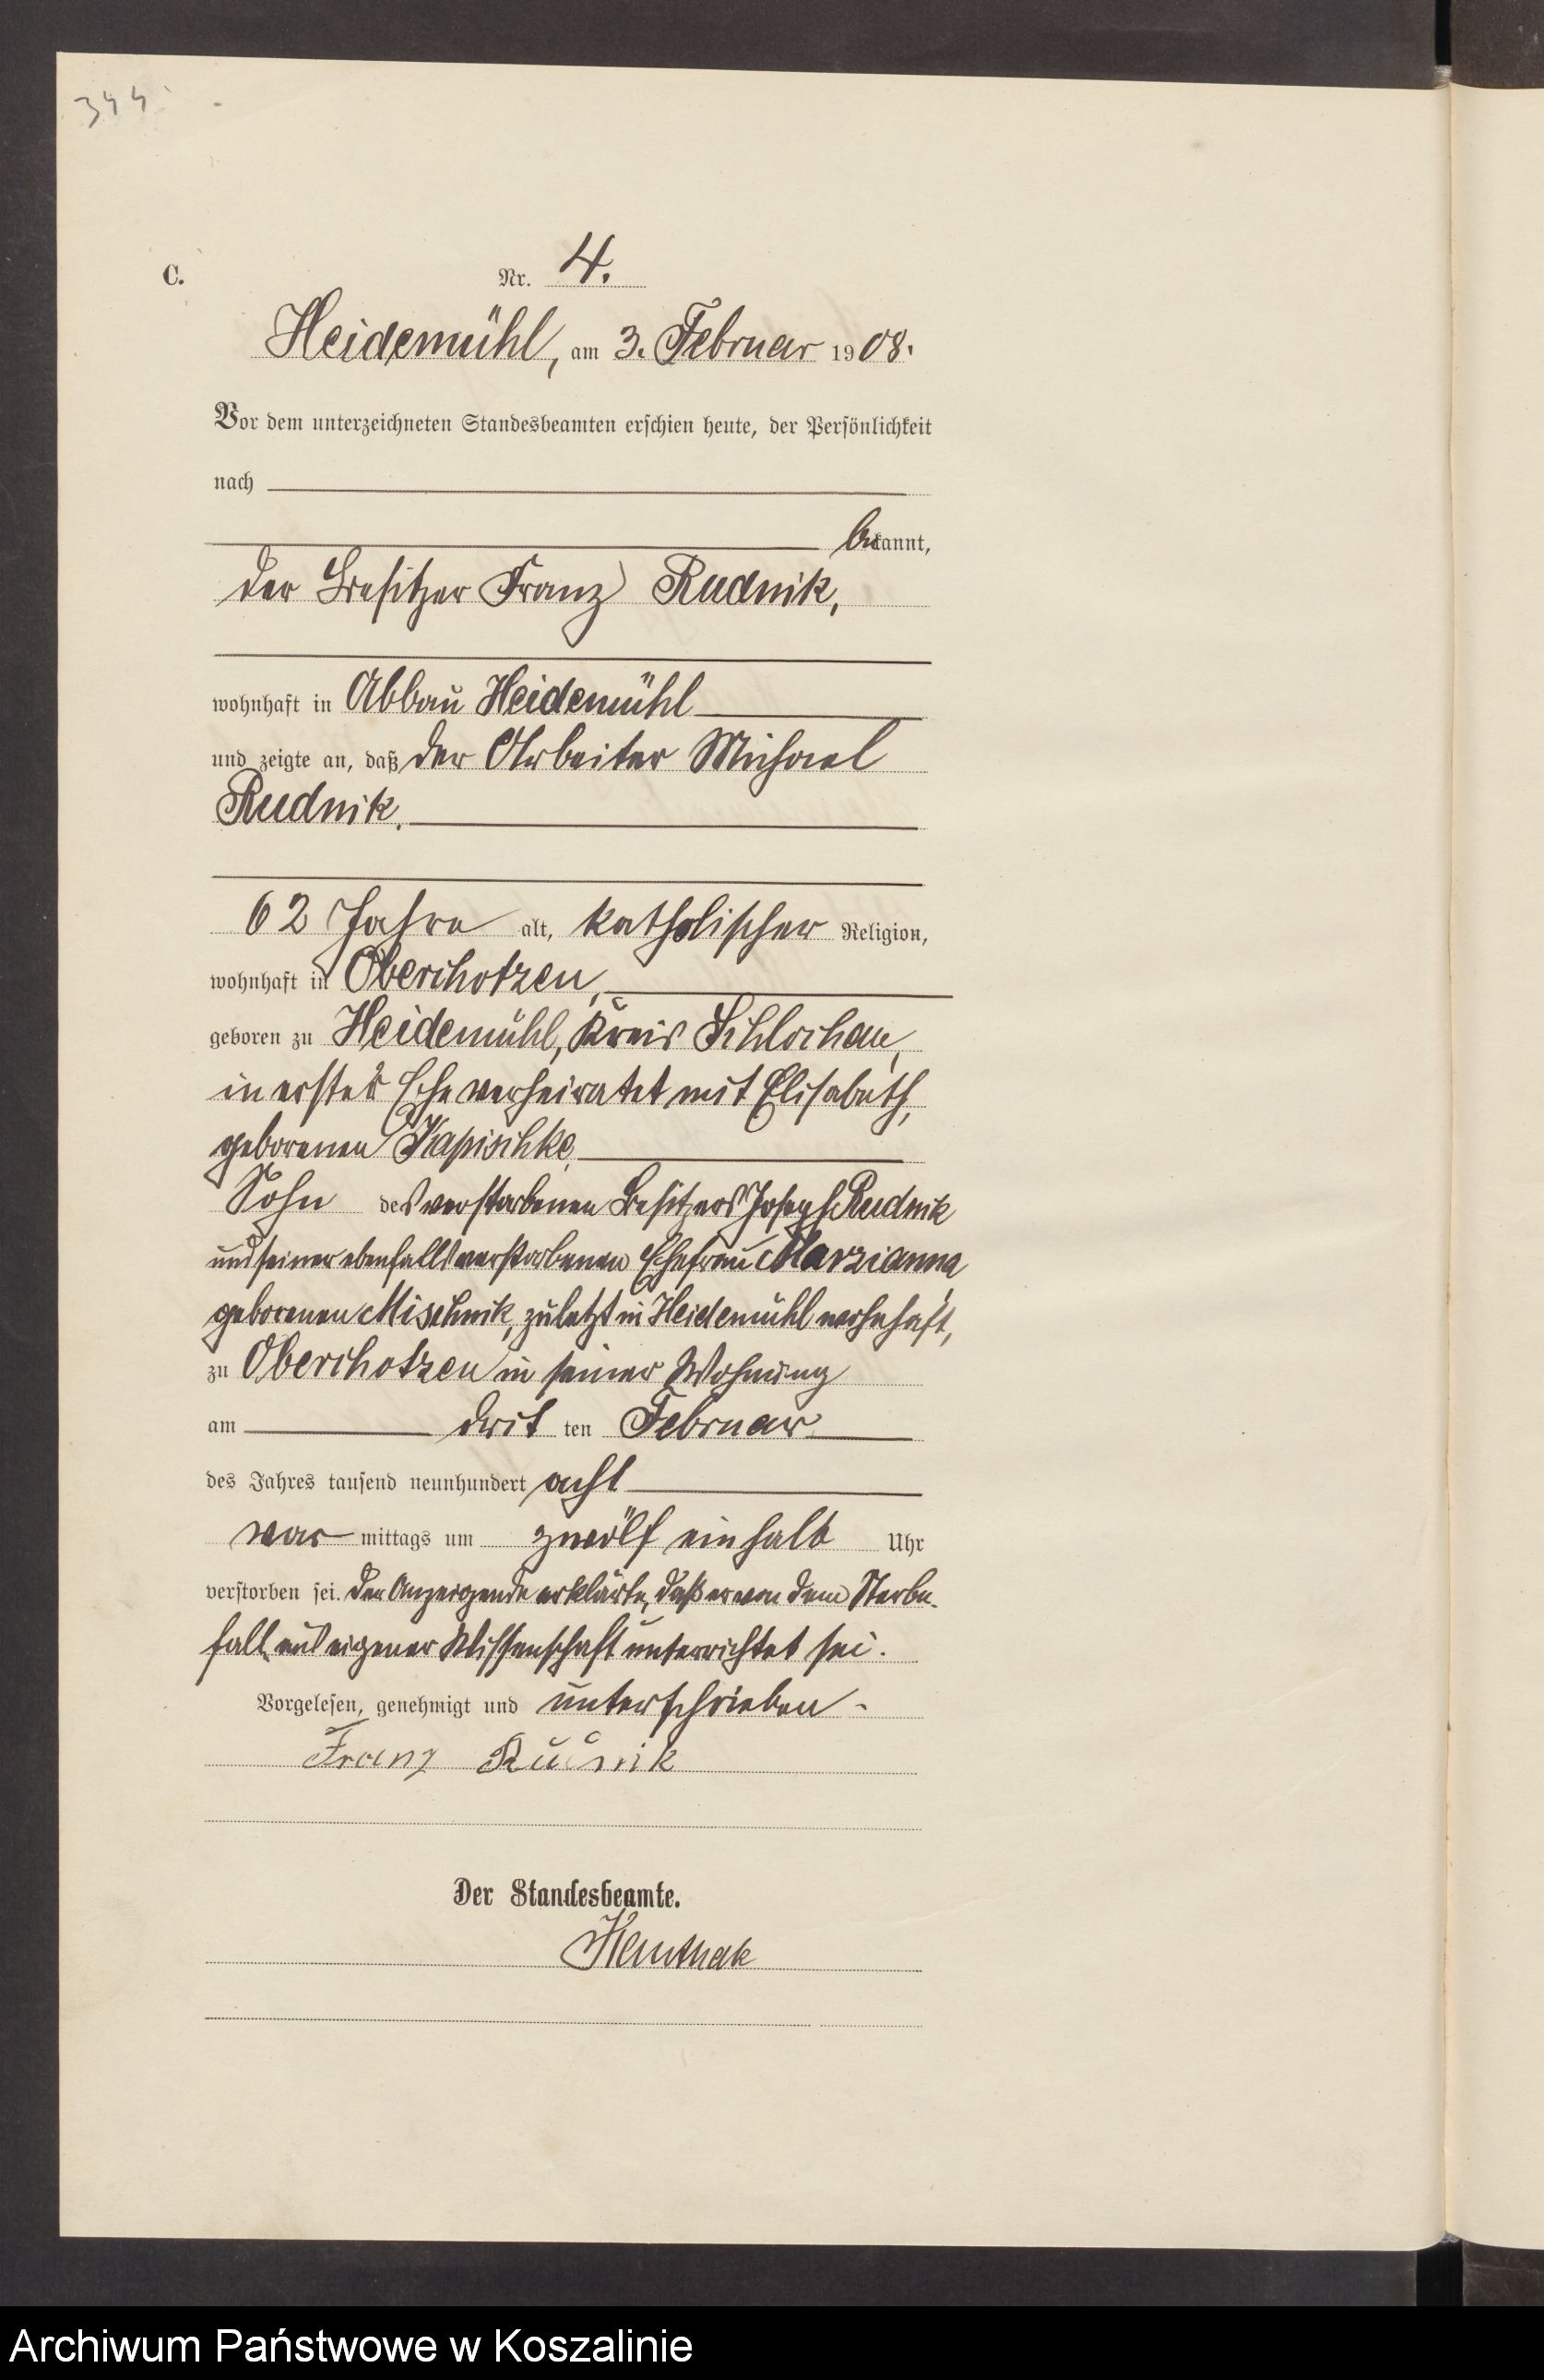 344
C.
Nr. 4.
Heidemühl, am 3. Februar 1908.
Vor dem unterzeichneten Standesbeamten erschien heute, der Persönlichkeit
nach
bekannt,
der Besitzer Franz Rudnik,
wohnhaft in Abbau Heidemühl
und zeigte an, daß der Arbeiter Michael
Rudnik,
62 Jahre alt, katholischer Religion,
wohnhaft in Oberchotzen,
geboren zu Heidemühl, Kreis Schlochau,
in erster Ehe verheiratet mit Elisabeth,
geborenen Kapischke,
Sohn des verstorbenen Besitzers Joseph Rudnik
und seiner ebenfalls verstorbenen Ehefrau Marzianna
geborenen Mischnik, zuletzt in Heidemühl wohnhaft,
zu Oberchotzen in seiner Wohnung
am dritten Februar
des Jahres tausend neunhundert acht
vormittags um zwölf einhalb Uhr
verstorben sei. Der Anzeigende erklärte, daß er von dem Sterbe-
fall aus eigener Wissenschaft unterrichtet sei.
Vorgelesen, genehmigt und unterschrieben
Franz Rudnik
Der Standesbeamte.
Archiwum Państwowe w Koszalinie